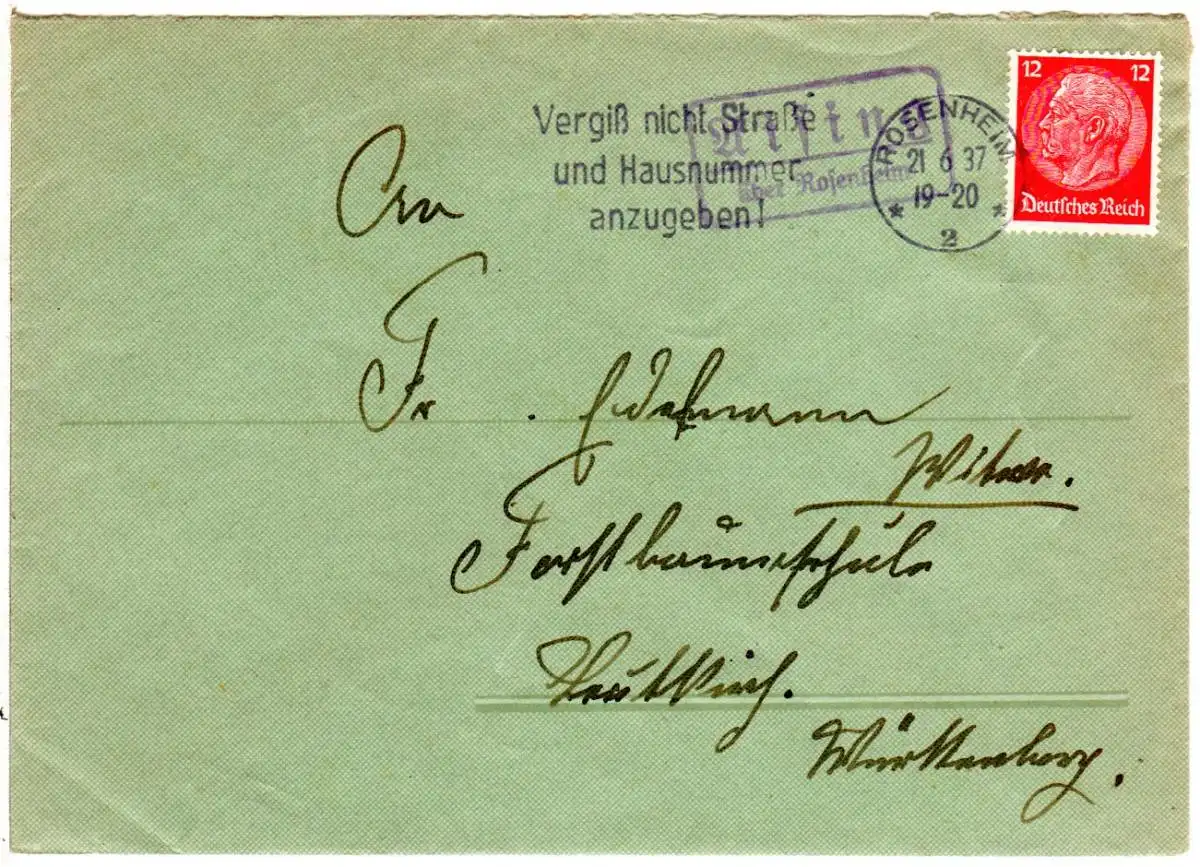 12 12
Deutsches Reich
ROSENHEIM
21 6 37
19-20
2
Vergiß nicht Straße
und Hausnummer
anzugeben!
über Rosenheim
An
Fr . Edelmann
Forstbaumschule
Leutkirch.
Württemberg.